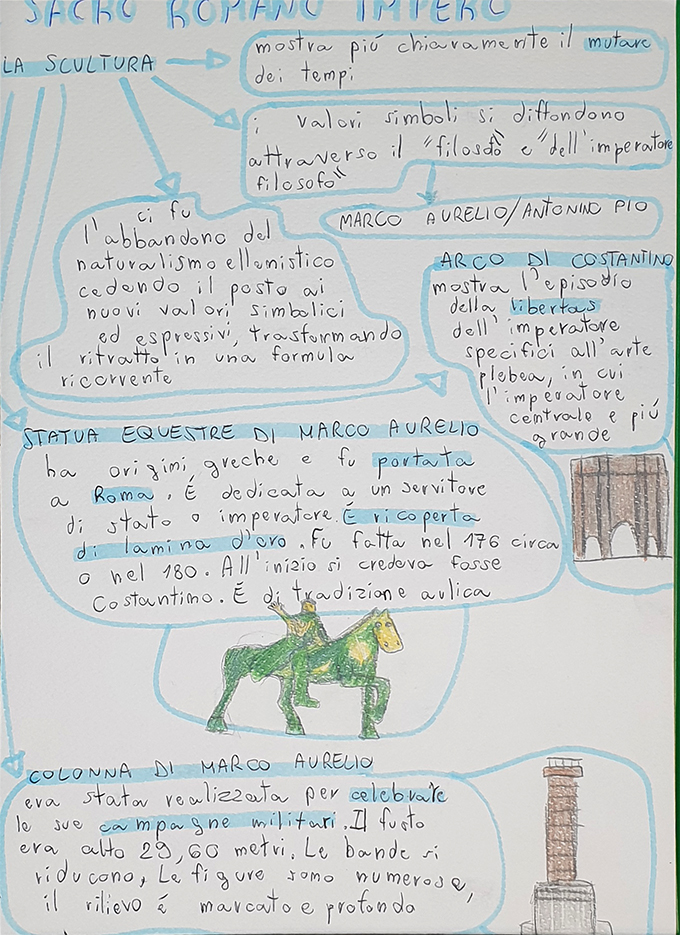 SACRO ROMANO IMPERO
LA SCULTURA
mostra piú chiaramente il mutare
dei tempi
i valori simboli si diffondono
attraverso il "filosofo" e "dell'imperatore
filosofo"
MARCO AURELIO/ANTONINO PIO
ci fu
l'abbandono del
naturalismo ellenistico
cedendo il posto ai
nuovi valori simbolici
ed espressivi, trasformando
il ritratto in una formula
ricorrente
ARCO DI COSTANTINO
mostra l'episodio
della libertas
dell'imperatore
specifici all'arte
plebea, in cui
l'imperatore
centrale e piú
grande
STATUA EQUESTRE DI MARCO AURELIO
ha origini greche e fu portata
a Roma. É dedicata a un servitore
di stato o imperatore. É ricoperta
di lamina d'oro. Fu fatta nel 176 circa
o nel 180. All'inizio si credeva fosse
Costantino. É di tradizione aulica
COLONNA DI MARCO AURELIO
era stata realizzata per celebrare
le sue campagne militari. Il fusto
era alto 29,60 metri. Le bande si
riducono, Le figure sono numerose,
il rilievo é marcato e profondo